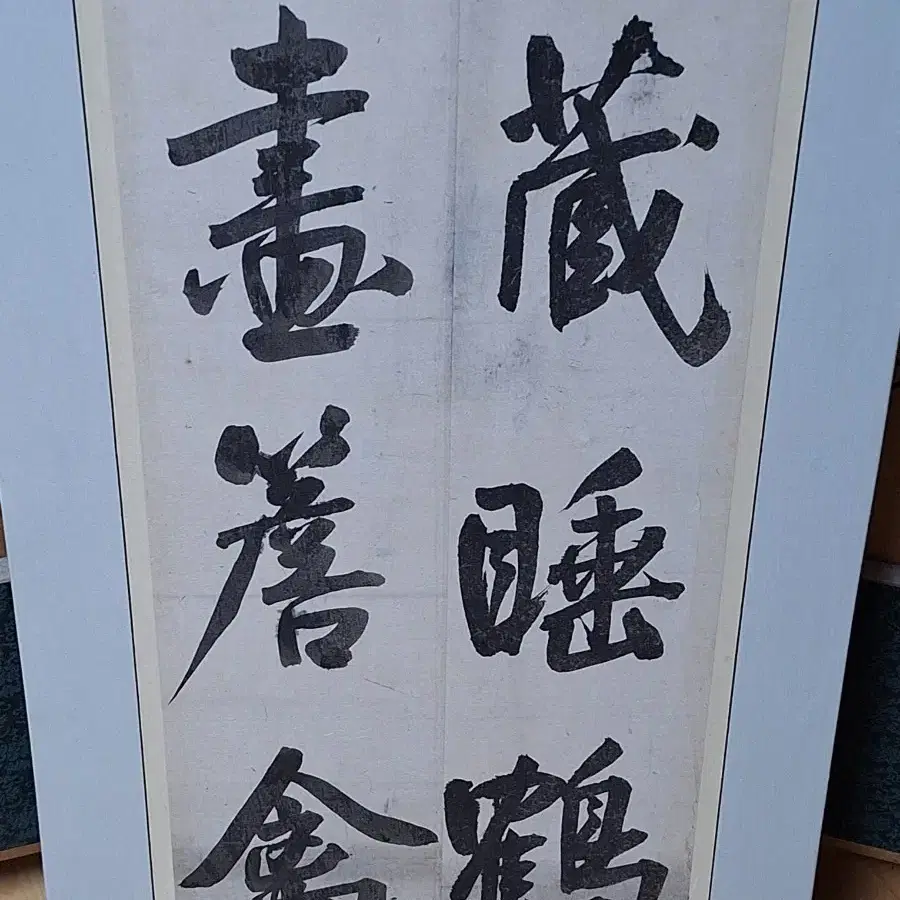 藏睡鶴
畫簷禽